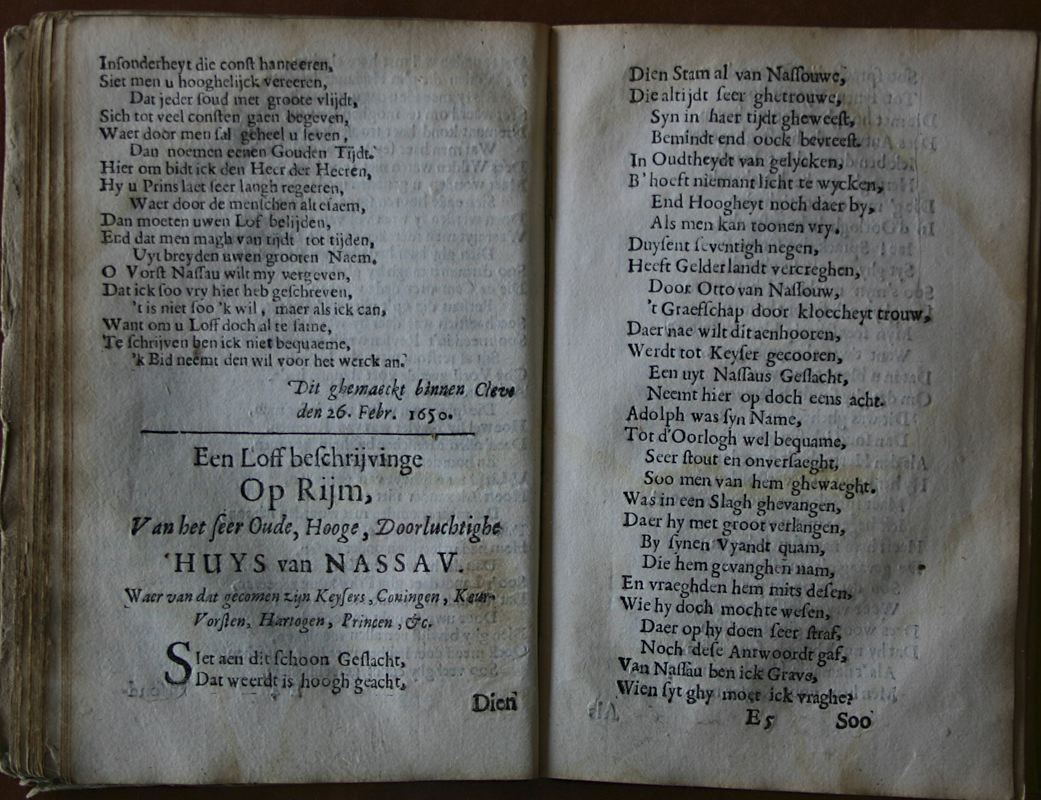 Insonderheyt die const hanteeren,
Siet men u hooghelijck vereeren,
Dat jeder soud met groote vlijdt,
Sich tot veel consten gaen begeven,
Waer door men sal geheel u leven,
Dan noemen eenen Gouden Tijdt.
Hier om bidt ick den Heer der Heeren,
Hy u Prins laet seer langh regeeren,
Waer door de menschen altesaem,
Dan moeten uwen Lof belijden,
End dat men magh van tijdt tot tijden,
Uyt breyden uwen grooten Naem.
O Vorst Nassau wilt my vergeven,
Dat ick soo vry hier heb geschreven,
't is niet soo 'k wil, maer als ick can,
Want om u Loff doch al te same,
Te schrijven ben ick niet bequaeme,
'k Bid neemt den wil voor het werck an.
Dit ghemaeckt binnen Cleve
den 26. Febr. 1650.
Een Loff beschrijvinge
Op Rijm,
Van het seer Oude, Hooge, Doorluchtighe
HUYS van NASSAV.
Waer van dat gecomen zijn Keysers, Coningen, Keur-
Vorsten, Hartogen, Princen, &c.
Siet aen dit schoon Geslacht,
Dat weerdt is hoogh geacht,
Dien
Dien Stam al van Nassouwe,
Die altijdt seer ghetrouwe,
Syn in haer tijdt gheweest,
Bemindt end oock bevreest.
In Oudtheydt van gelycken,
B'hoeft niemant licht te wycken,
End Hoogheyt noch daer by,
Als men kan toonen vry.
Duysent seventigh negen,
Heeft Gelderlandt vercreghen,
Door Otto van Nassouw,
't Graefschap door kloecheyt trouw,
Daer nae wilt dit aenhooren,
Werdt tot Keyser gecooren,
Een uyt Nassaus Geslacht,
Neemt hier op doch eens acht.
Adolph was syn Name,
Tot d'Oorlogh wel bequame,
Seer stout en onversaeght,
Soo men van hem ghewaeght.
Was in een Slagh ghevangen,
Daer hy met groot verlangen,
By synen Vyandt quam,
Die hem gevanghen nam,
En vraeghden hem mits desen,
Wie hy doch mochte wesen,
Daer op hy doen seer straf,
Noch dese Antwoordt gaf,
Van Nassau ben ick Grave,
Wien syt ghy moet ick vraghe?
E5 Soo